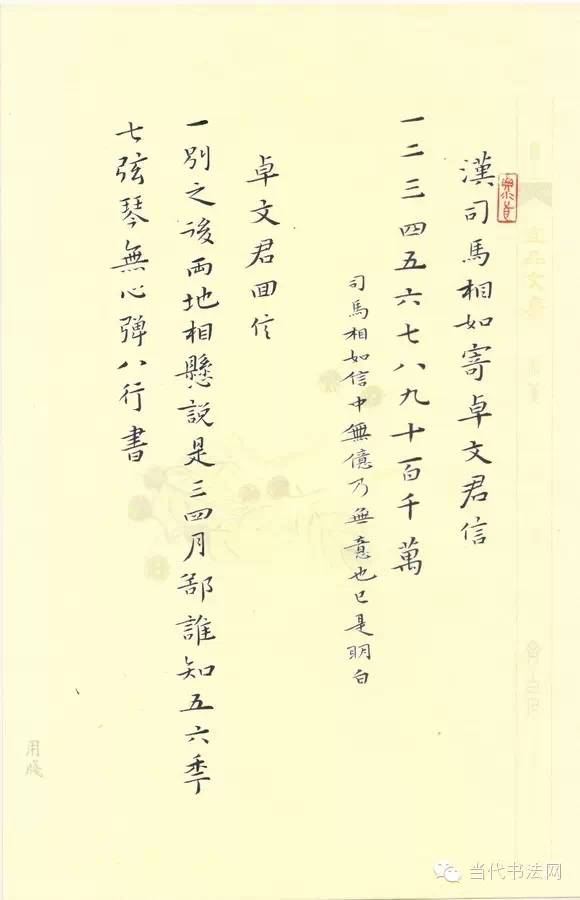 漢司馬相如寄卓文君信
一二三四五六七八九十百千萬
司馬相如信中無億乃無意也已是眀白
卓文君囬信
一別之後兩地相懸說是三四月郤誰知五六秊
七弦琴無心彈八行書
用牋
当代书法网